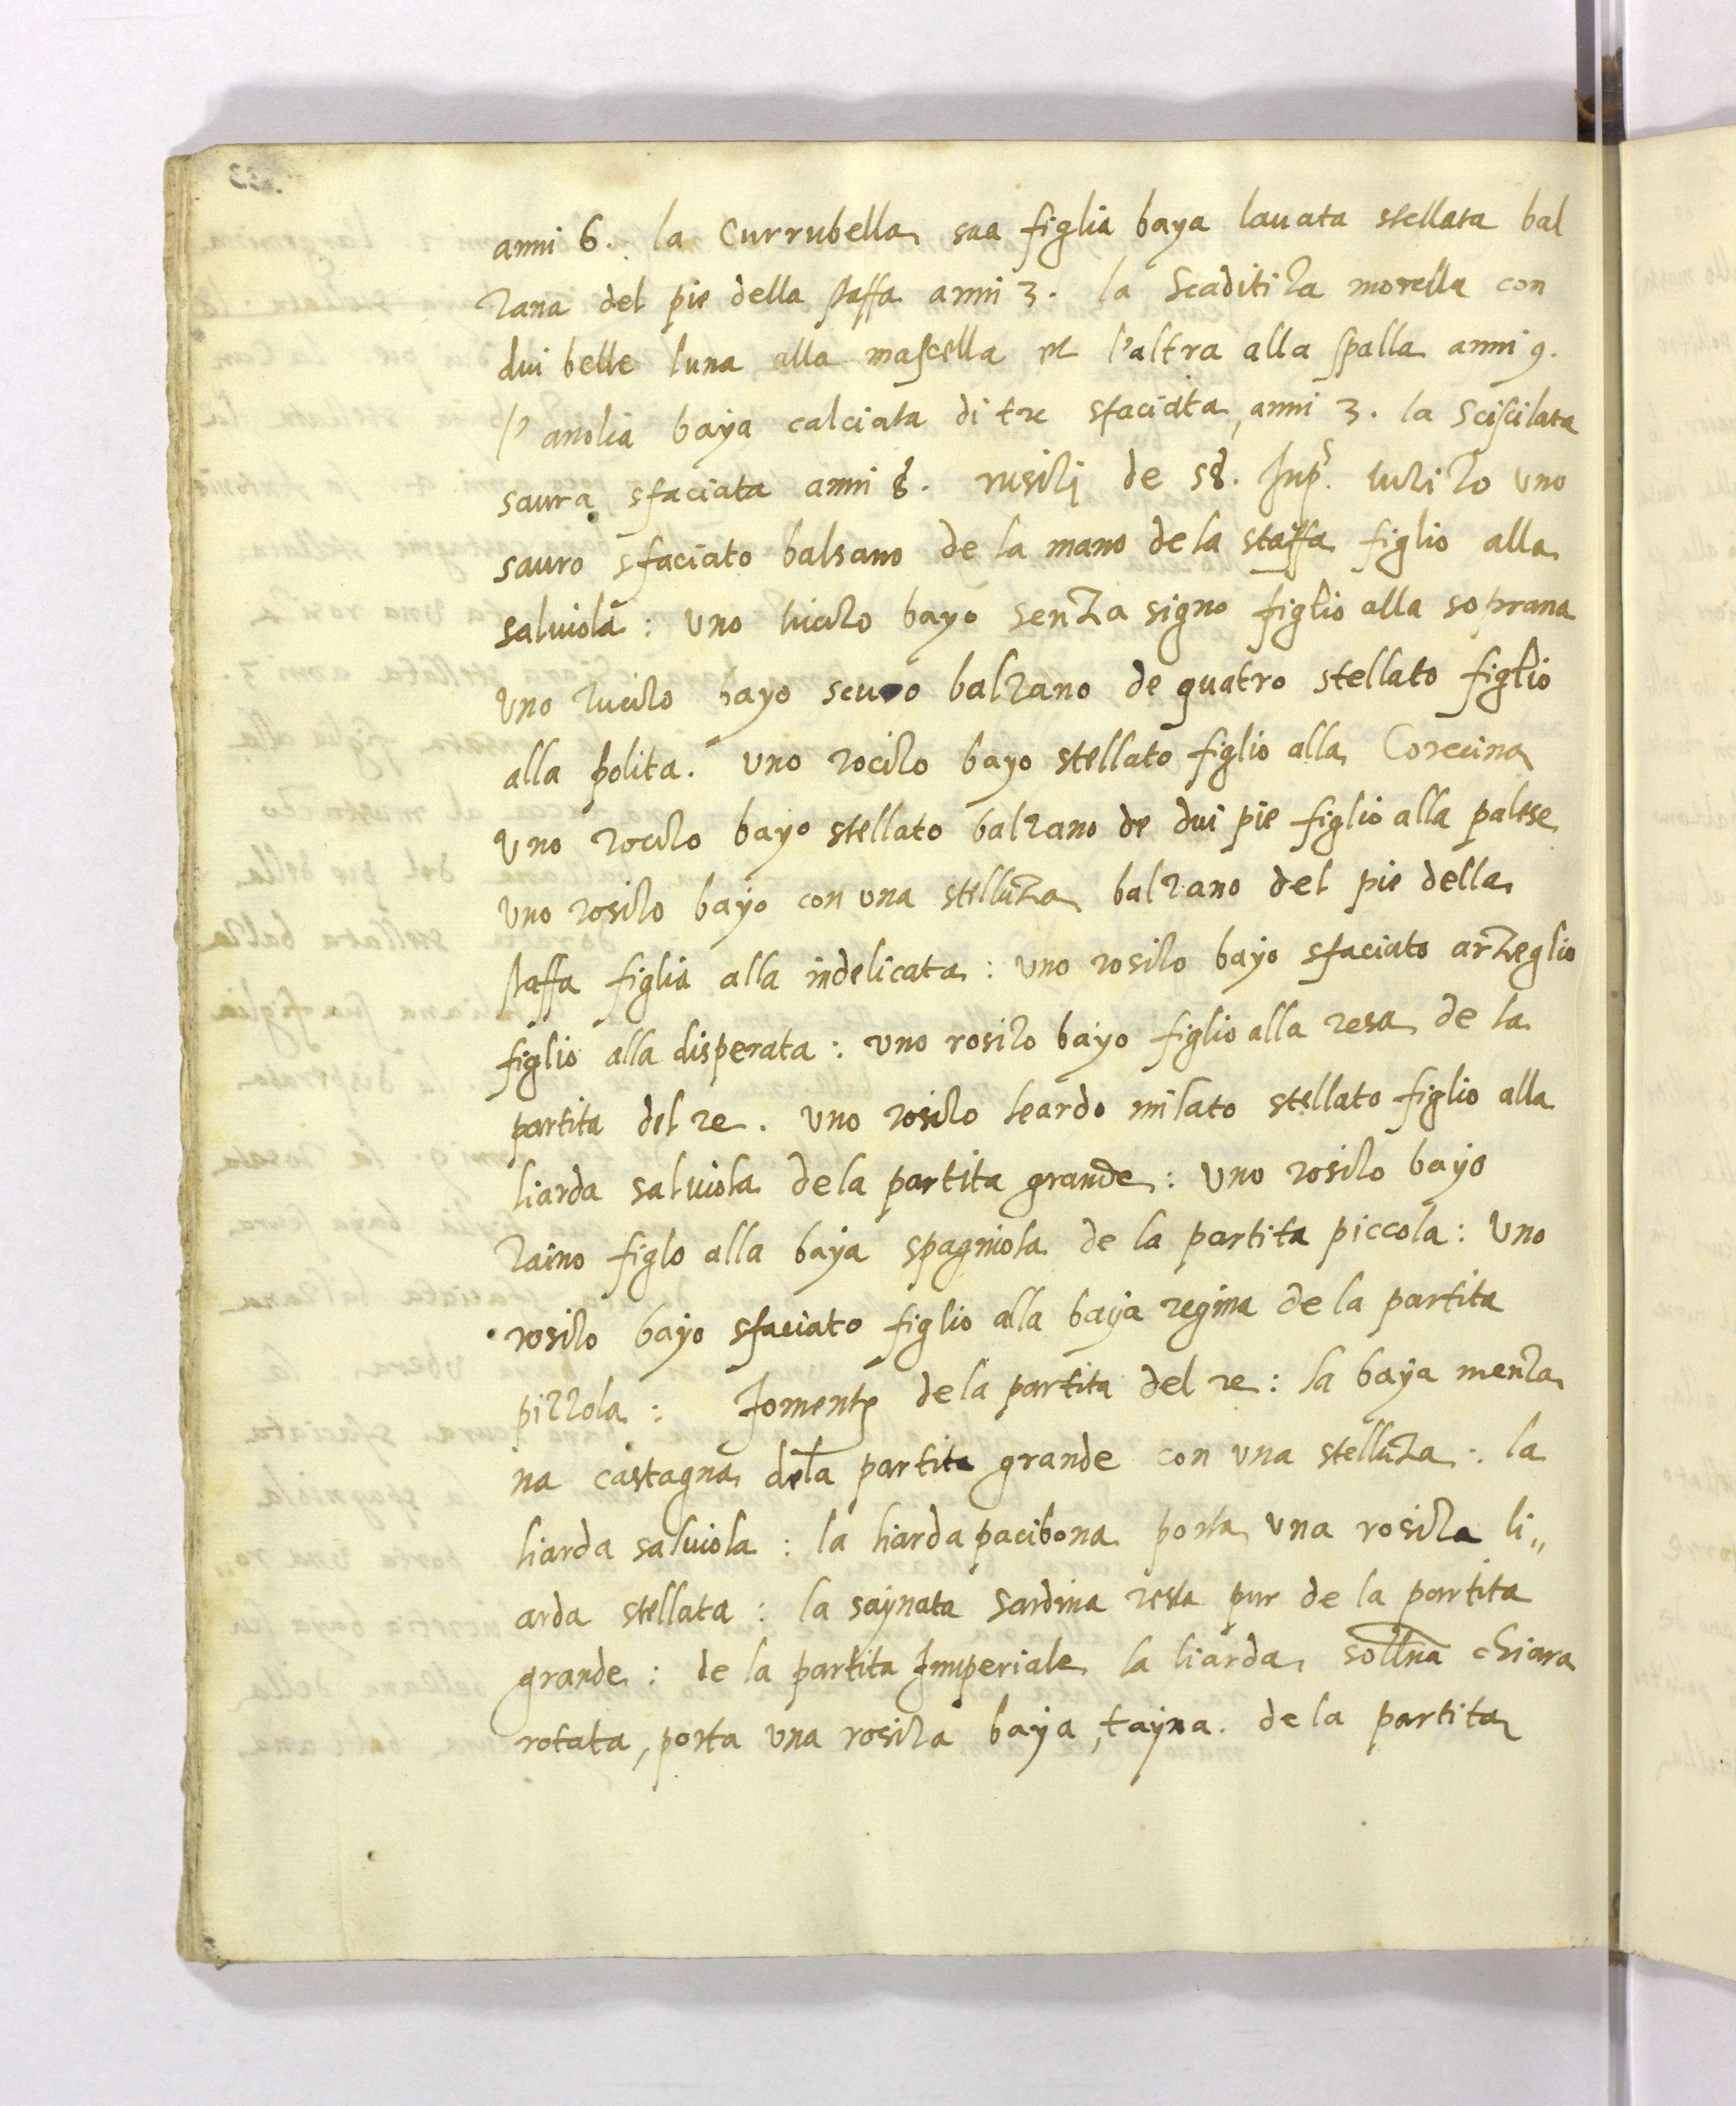 anni 6. la Currubella sua figlia baya lauata stellata bal
zana del pie della staffa anni 3. la Scaditiza morella con
dui belle luna alla mascella et l'altra alla spalla anni 9.
l'anolia baya calciata di tre sfaciata, anni 3. la Sciscilata
saura sfaciata anni 8. rusilj de 58. Inp. luzizo uno
sauro sfaciato balsano de la mano de la staffa figlio alla
saluiola : uno bayo senza signo figlio alla soprana
uno bayo scuro balzano de quatro stellato figlio
alla polita. uno rocilo bayo stellato figlio alla Corecina
uno rocilo bayo stellato balzano de dui pie figlio alla palese
uno rosilo bayo con una stelluza balzano del pie della
staffa figlia alla indelicata : uno rosilo bayo sfaciato arzeglio
figlio alla disperata : uno rosilo bayo figlio alla resa de la
partita del re. uno rosilo leardo milato stellato figlio alla
liarda saluiola de la partita grande : uno rosilo bayo
zaino figlo alla baya spagniola de la partita piccola : uno
rosilo bayo sfaciato figlio alla baya regina de la partita
pizzola : Jomente de la partita del re : la baya menza
na castagna dela partita grande con una stelluza : la
liarda saluiola : la liarda pacibona porta una rosila li„
arda stellata : la saynata sardina resta pur de la partita
grande : de la partita Imperiale la liarda sollna chiara
rotata, porta una rosila baya, tayna. de la partita